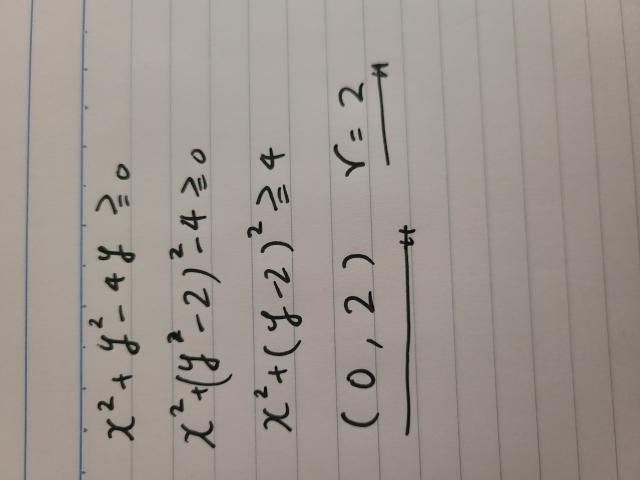 x² + y² - 4y ≧ 0
x² + (y² - 2)² - 4 ≧ 0
x² + (y - 2)² ≧ 4
(0, 2) r = 2